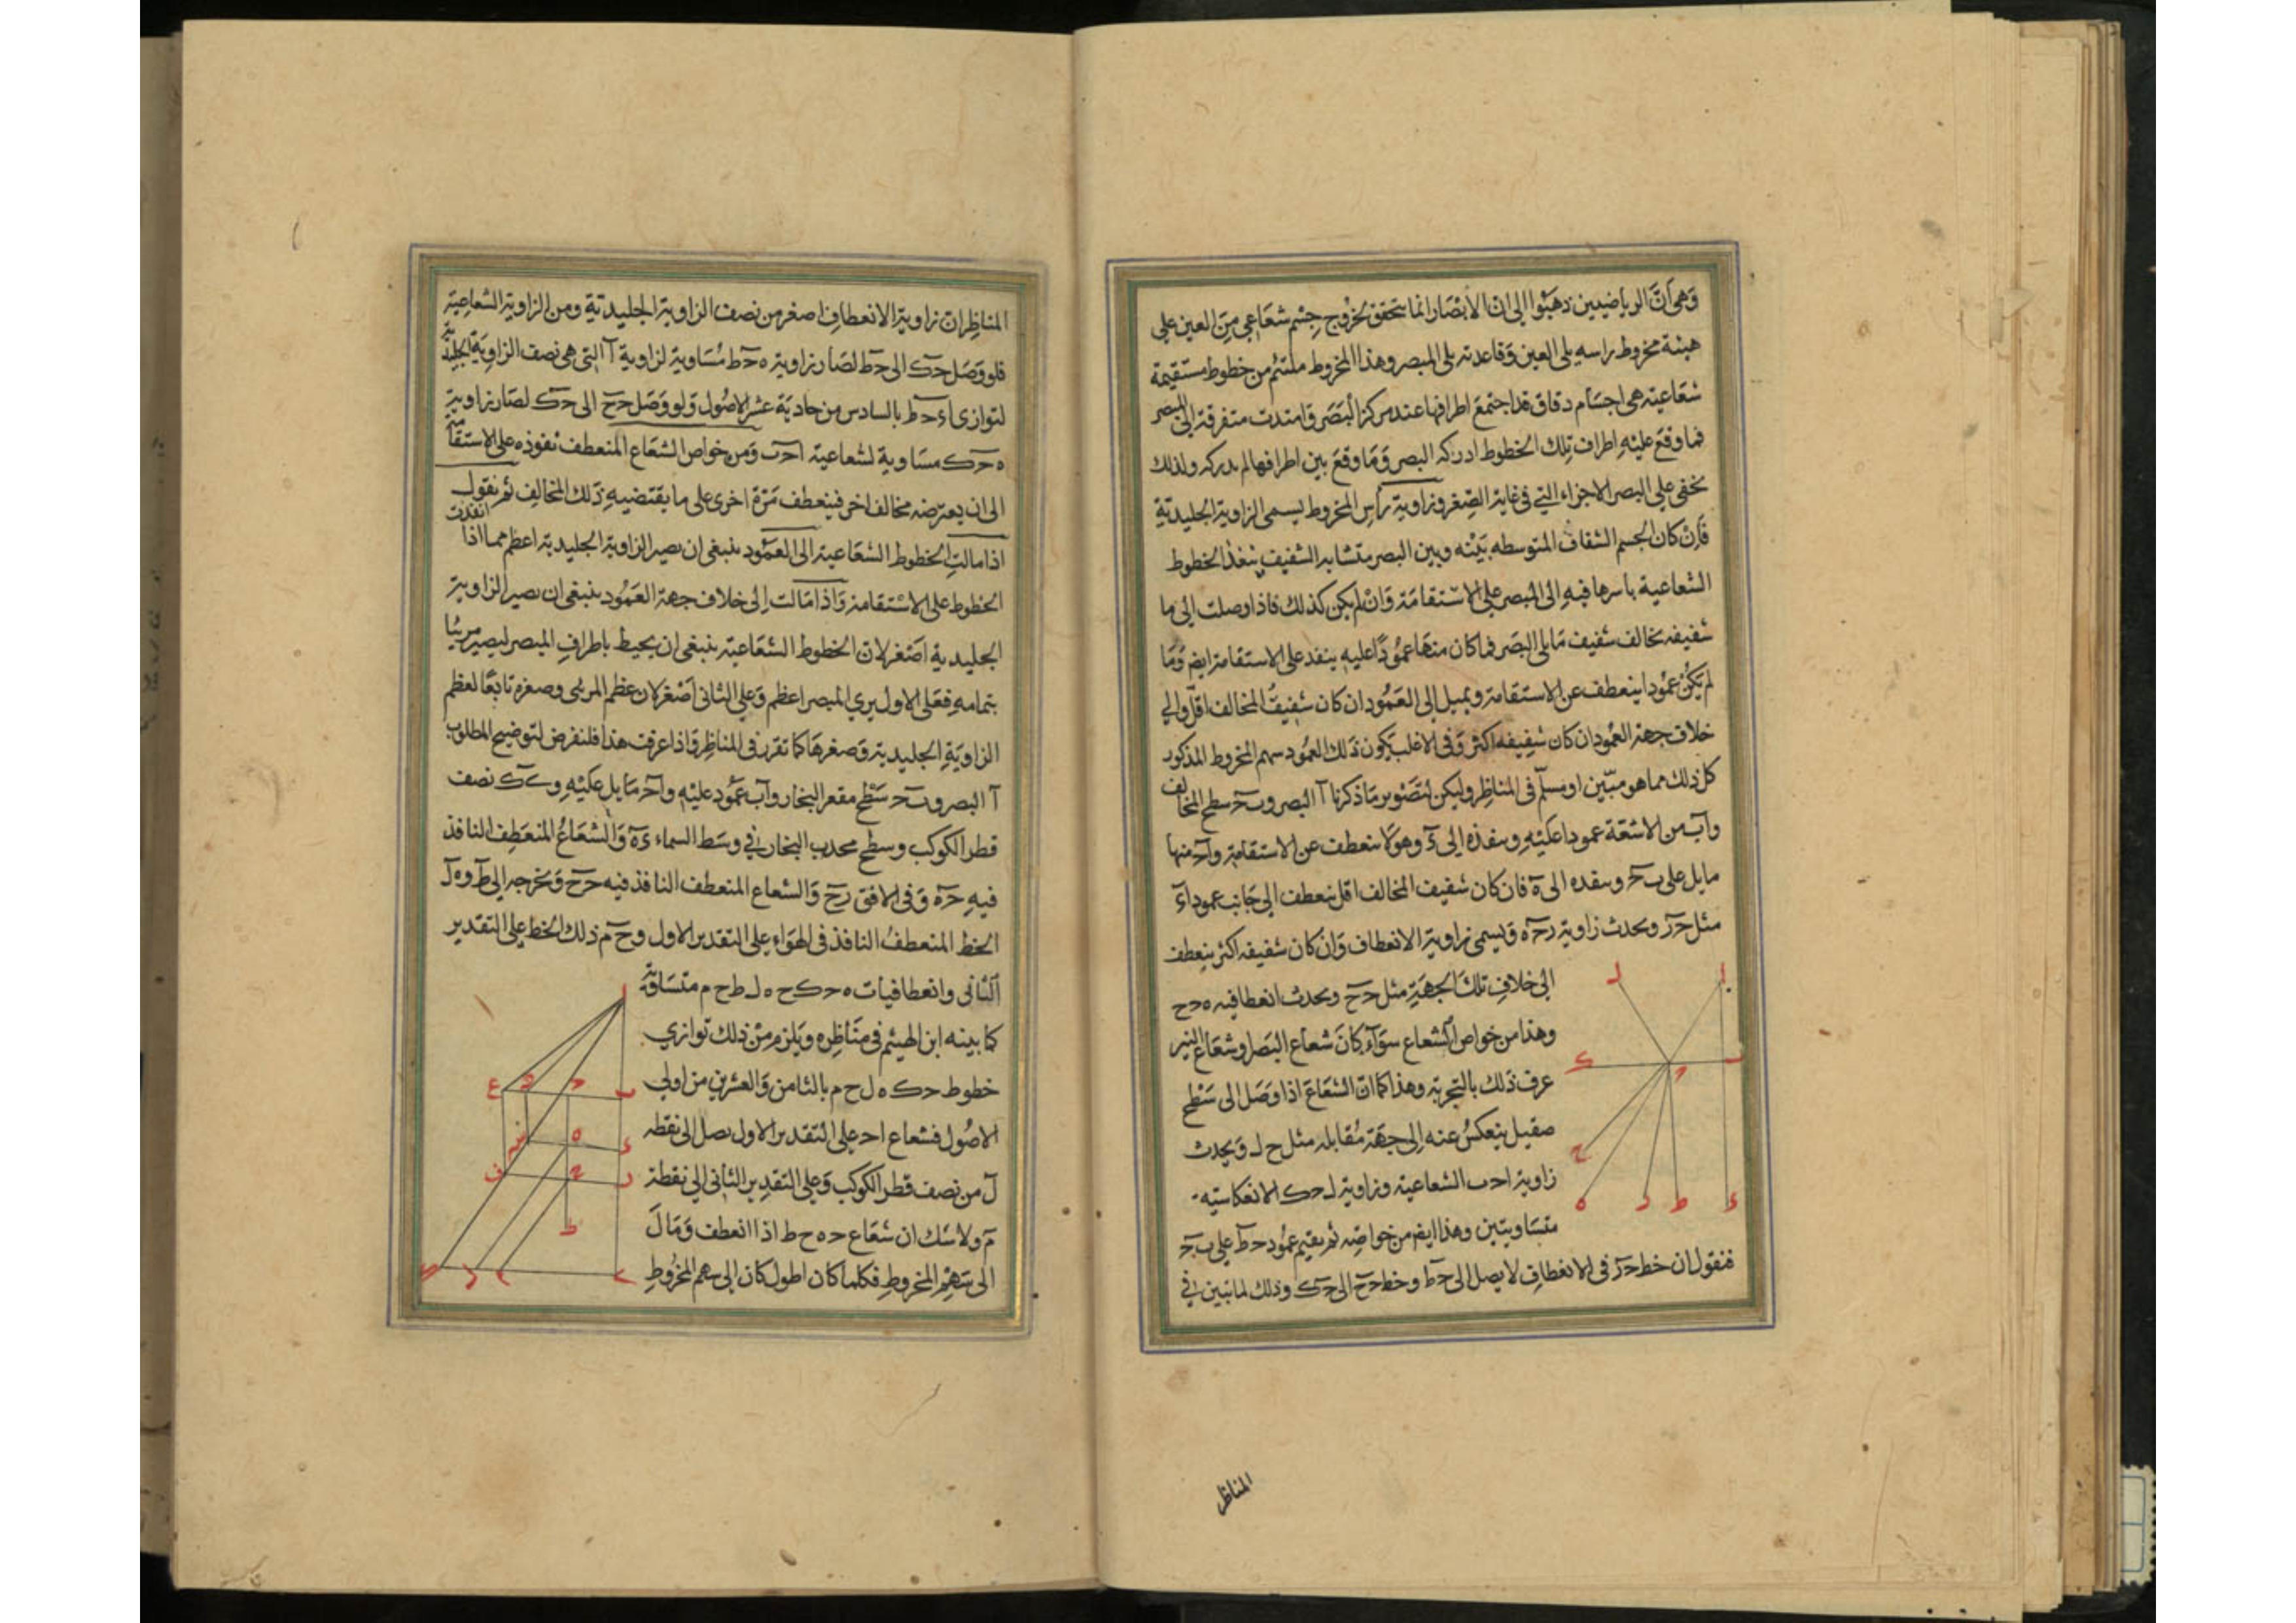 وهي أن الرياضيين ذهبوا الى ان الابصار انما يتحقق بخروج جسم شعاعي من العين علي
هيئة مخروط راسه يلي العين وقاعدته يلي المبصر وهذا المخروط ملتئم من خطوط مستقيمة
شعاعيته هي اجسام دقاق قد اجتمع اطرافها عند مركز البصر وامتدت متفرقة الى المبصر
فما وقع عليه اطراف تلك الخطوط ادركه البصر وما وقع بين اطرافها لم يدركه ولذلك
يخفى علي البصر الاجزاء التي في غاية الصغر وزاوية رأس المخروط يسمى الزاوية الجليدية
فان كان الجسم الشفاف المتوسطه بينه وبين البصر متشابه الشفيف ينفذ الخطوط
الشعاعية باسرها فيه الى المبصر على الاستقامة وان لم يكن كذلك فاذا وصلت الى ما
شفيفه يخالف شفيف ما يلي البصر فما كان منها عمودًا عليه ينفد على الاستقامة ايض وما
لم يكن عمودا ينعطف عن الاستقامة ويميل الى العمود ان كان شفيف المخالف اقل والي
خلاف جهة العمود ان كان شفيفه اكثر وفي الاغلب يكون ذلك العمود سهم المخروط المذكور
كل ذلك مما هو مبين او مسلم في المناظر وليكن لتصوير ما ذكرنا آ البصر وب ح سطح المخالف
وآب من الاشعة عمودا عليه وينفذه الى ء وهو لا ينعطف عن الاستقامة وآح منها
مايل على ب ح وينفده الى ه فان كان شفيف المخالف اقل ينعطف الى جانب عمود اء
مثل ح ر ويحدث زاوية ر ح ه ويسمى زاوية الانعطاف وان كان شفيفه اكثر ينعطف
الى خلاف تلك الجهة مثل ح ح ويحدث انعطافيه ه ح ح
وهذا من خواص الشعاع سواء كان شعاع البصر او شعاع النير
عرف ذلك بالتجربة وهذا كما ان الشعاع اذا وصل الى سطح
صقيل ينعكس عنه الى جهة مقابله مثل ح ل ويحدث
زاوية ا ح ب الشعاعية وزاوية ل ح ك الانعكاسيه
متساويتين وهذا ايض من خواصه ثم نقيم عمود ح ط على ب ح
فنقول ان خط ح ر في الانعطاف لا يصل الى ح ط وخط ح ح الى ح ك وذلك لما تبين في
المناظر
المناظر ان زاوية الانعطاف اصغر من نصف الزاوية الجليدية ومن الزاوية الشعاعية
فلو وصل ح ك الى ح ط لصار زاوية ه ح ط مساوية لزاوية آ التي هي نصف الزاوية الجليدية
لتوازى اء ح ط بالسادس من حادية عشر الاصول ولو وصل ح ح الى ح ك لصار زاوية
ه ح ك مساوية لشعاعية ا ح ب ومن خواص الشعاع المنعطف نفوذه على الاستقامة
الى ان يعترضه مخالف اخر فينعطف مرة اخرى على ما يقتضيه ذلك المخالف ثم نقول
اذا مالت الخطوط الشعاعية الى العمود ينبغى ان يصير الزاوية الجليدية اعظم مما اذا انفذت
الخطوط على الاستقامة واذا مالت الى خلاف جهة العمود ينبغى ان يصير الزاوية
الجليدية اصغر لان الخطوط الشعاعية ينبغى ان يحيط باطراف المبصر ليصير مرئيا
بتمامه فعلى الاول يري المبصر اعظم وعلى الثانى اصغر لان عظم المرئى وصغره تابعا لعظم
الزاوية الجليدية وصغرها كما تقرر في المناظر واذا عرفت هذا فلنفرض لتوضيح المطلوب
آ البصر وب ح سطح مقعر البخار وآب عمود عليه وآح مايل عليه و س ك نصف
قطر الكوكب وسطح محدب البخار في وسط السماء ءه والشعاع المنعطف النافذ
فيه ح ه وفي الافق ر ح والشعاع المنعطف النافذ فيه ح ح ونخرجه الى ط و ه ل
الخط المنعطف النافذ في الهواء على التقدير الاول و ح م ذلك الخط على التقدير
الثانى وانعطافيات ه ح ك ح ه ل ط ح م متساوية
كما بينه ابن الهيثم في مناظره ويلزم من ذلك توازي
خطوط ح ك ه ل ح م بالثامن والعشرين من اولى
الاصول فشعاع ا ح على التقدير الاول يصل الى نقطه
ل من نصف قطر الكوكب وعلى التقدير الثانى الى نقطة
م ولا شك ان شعاع ح ه ح ط اذا انعطف ومال
الى سهم المخروط فكلما كان اطول كان الى سهم المخروط